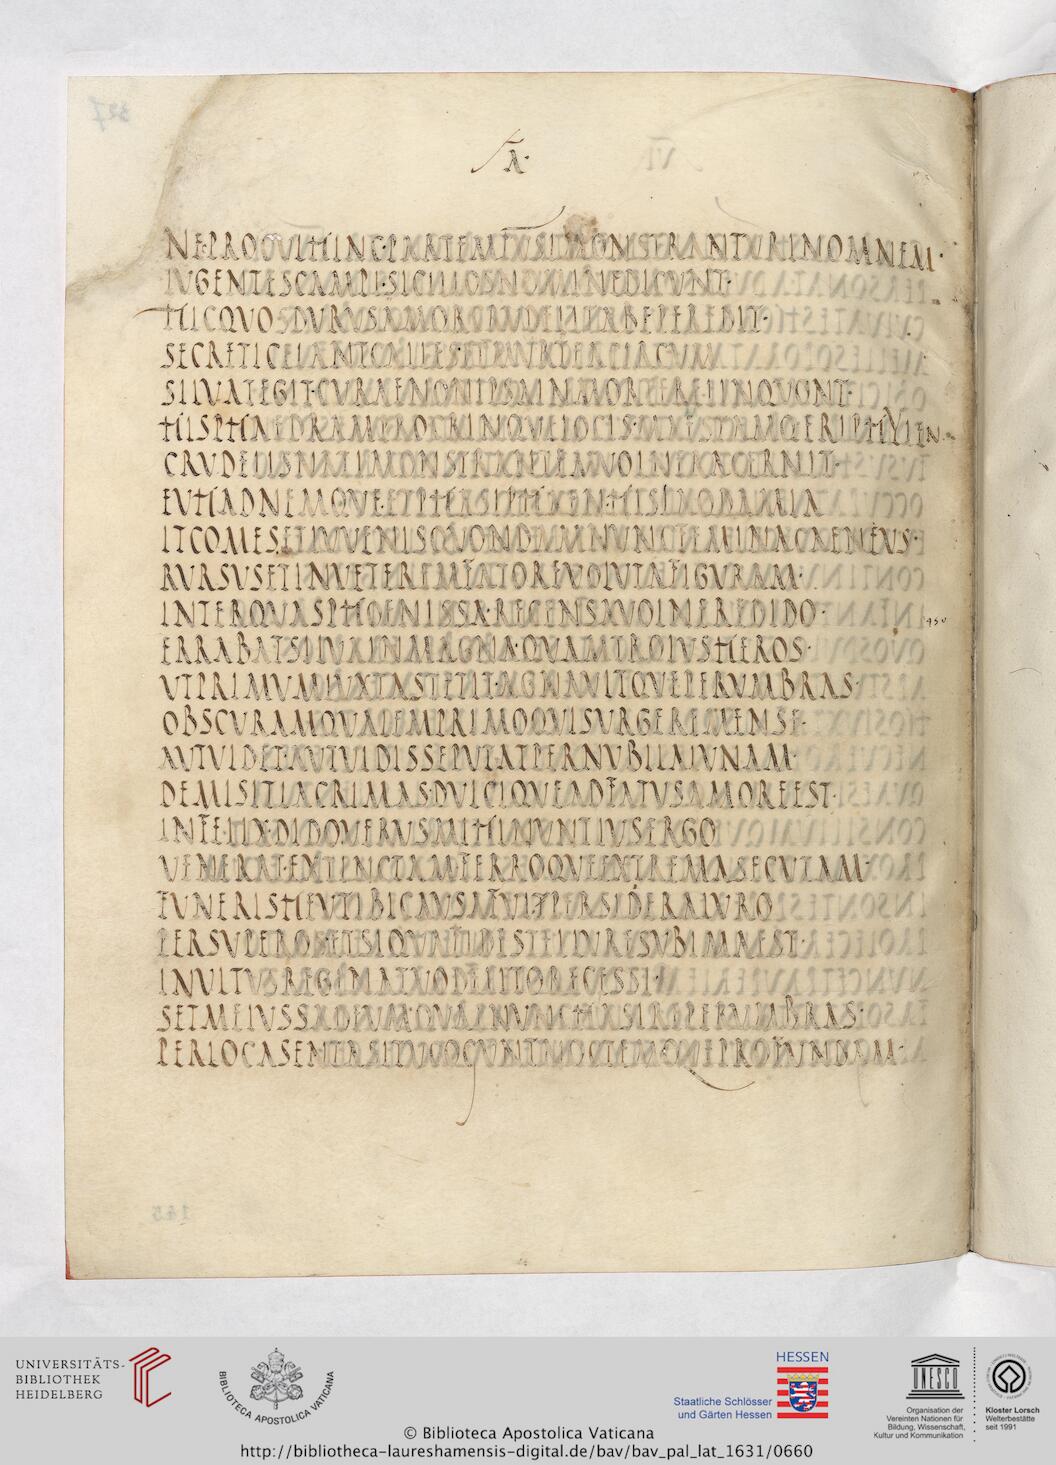 A·
NEPROCULHINC·PARTEMFUSIMONSTRANTURINOMNEM·
LUGENTESCAMPI·SICILLOSNOMINEDICUNT·
HICQUOSDURUSAMORCRUDELITABEPEREDIT·
SECRETICELANTCALLES·ETMYRTEACIRCUM
SILVATEGIT·CURAENONIPSAINMORTERELINQUONT·
HISPHAEDRAMPROCRINQUELOCIS·MAESTAMQERIPHYLEN·
CRUDELISNATIMONSTRANTEMVOLNERACERNIT·
EUHADNEMQUE·ETPHASIPHAEN·HISLAODAMIA
ITCOMES·ETIUVENISQUONDAMNUNCFEMINACAENEUS·
RURSUSETINVETEREMFATOREVOLUTAFIGURAM·
INTERQUASPHOENISSA·RECENSAVOLNEREDIDO·
450
ERRABATSILVAINMAGNA·QUAMTROIUSHEROS·
UTPRIMUMIUXTASTETIT·AGNAVITQUEPERUMBRAS·
OBSCURAMQUALEMPRIMOQUISURGEREMENSE·
AUTVIDET·AUTVIDISSEPUTATPERNUBILALUNAM·
DEMISITLACRIMAS·DULCIQUEADFATUSAMOREEST·
INFELIXDIDOVERUSMIHINUNTIUSERGO
VENERAT·EXTINCTAMFERROQUEEXTREMASECUTAM·
FUNERISHEUTIBICAUSAFUI·TPERSIDERAIURO
PERSUPEROS·ETSIQUAFIDESTELLURESUBIMAEST·
INVITUSREGINATUODELITORECESSI·
SETMEIUSSADEUMQUAENUNCHASIREPERUMBRAS·
PERLOCASENTASITUCOGUNTNOCTEMQUEPROFUNDAM·
327
145
UNIVERSITÄTS-
BIBLIOTHEK
HEIDELBERG
BIBLIOTECA APOSTOLICA VATICANA
HESSEN
Staatliche Schlösser
und Gärten Hessen
UNESCO
Organisation der
Vereinten Nationen für
Bildung, Wissenschaft,
Kultur und Kommunikation
Kloster Lorsch
Welterbestätte
seit 1991
© Biblioteca Apostolica Vaticana
http://bibliotheca-laureshamensis-digital.de/bav/bav_pal_lat_1631/0660